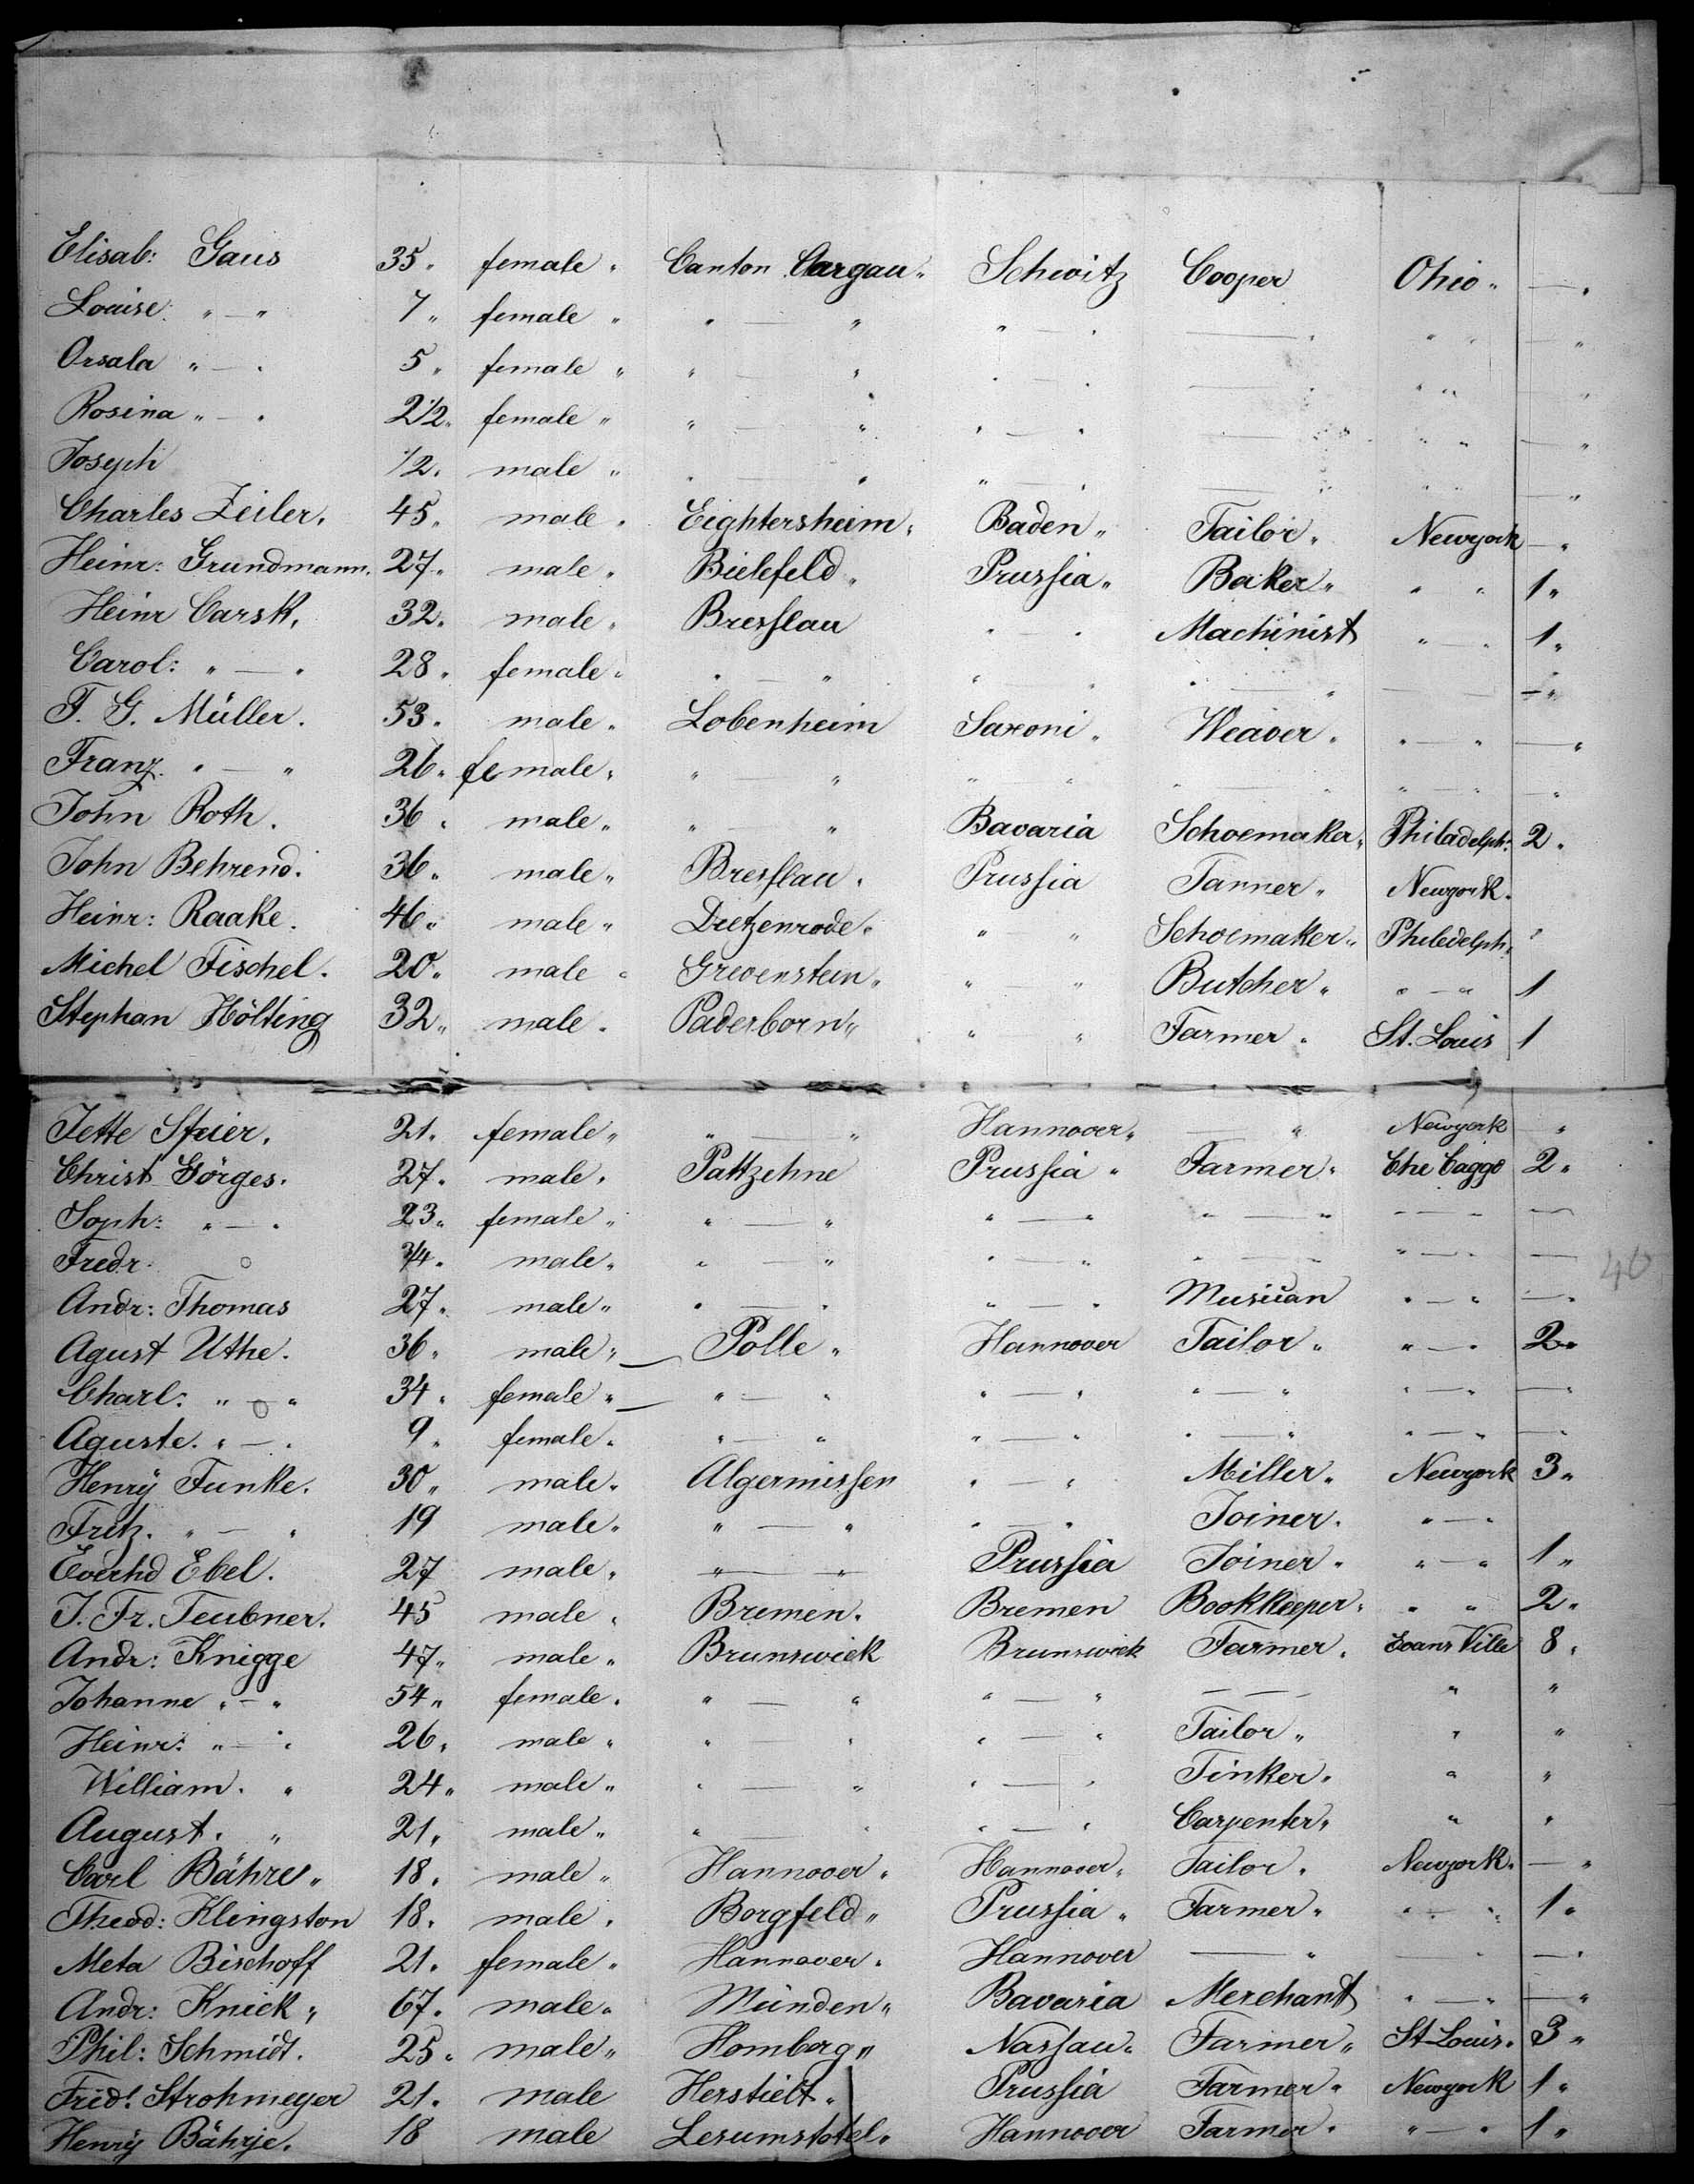 Elisab: Gaus 35 " female " Canton Aargau " Schwitz Cooper Ohio " — "
Louise: " — " 7 " female " " — " " — " — " " " — "
Orsala " — " 5 " female " " — " " — " — " " " — "
Rosina " — " 2 1/2 " female " " — " " — " — " " " — "
Joseph 1/2 " male " " — " " — " — " " " — "
Charles Zeiler. 45 " male " Eightersheim " Baden " Tailor " Newyork — "
Heinr: Grundmann. 27 " male " Bielefeld " Prussia " Baker " " " 1 "
Heinr Carsk. 32 " male " Bresslau " — " Machinist " — " 1 "
Carol: " — " 28 " female " " — " " " " — " — — "
F. G. Müller. 53 " male " Lobenheim Saxoni " Weaver " " — " — "
Franz. " — " 26 " female " " — " " " " — " " — " — "
John Roth. 36 " male " " — " Bavaria Schoemaker " Philadelph: 2 "
John Behrend. 36 " male " Bresslau " Prussia Tanner " Newyork.
Heinr: Raake. 46 " male " Dietzenrode " " " Schoemaker " Philedelph " "
Michel Fischel. 20 " male " Grevenstein " " " Butcher " " — " 1
Stephan Hölting 32 " male " Paderborn " " " Farmer " St. Louis 1
Jette Steier. 21 " female " " — " Hannover " — " Newyork "
Christ Görges. 27 " male " Pattzehne Prussia " Farmer " Che Caggo 2 "
Soph: " — " 23 " female " " — " " — " " — " " — " —
Fredr. 3/4 " male " " — " " — " " — " — " —
Andr: Thomas 27 " male " " — " " — " Musician " — " — "
40
Agust Uthe. 36 " male " — Polle " Hannover Tailor " " — " 2 "
Charl: " — " 34 " female " — " — " " — " " — " " — " — "
Aguste. " — " 9 " female " " — " " — " " — " " — " — "
Henrÿ Funke. 30 " male " Algermissen " — " Miller " Newyork 3 "
Fritz. " — " 19 male " " — " " — " Joiner. " — "
Everhd Ebel. 27 male " " — " Prussia Joiner " " — " 1 "
J. Fr. Teubner. 45 male " Bremen. Bremen Bookkeeper " " " 2 "
Andr: Knigge 47 " male " Brunswick Brunswick Farmer " Evans Ville 8 "
Johanne " — " 54 " female " " — " " — " — — " "
Heinr: " — " 26 " male " " — " " — " Tailor " " "
William. " 24 " male " " — " " — " Tinker " " "
August. " 21 " male " " — " " — " Carpenter " " "
Carl Bähre " 18 " male " Hannover " Hannover " Tailor " Newyork. — "
Theod: Klingston 18 " male " Borgfeld " Prussia " Farmer " " — " 1 "
Meta Bischoff 21 " female " Hannover " Hannover — " — " — "
Andr: Knick " 67 " male " Münden " Bavaria Merchant " — " — "
Phil: Schmidt. 25 " male " Homberg " Nassau " Farmer " St Louis " 3 "
Frid! Strohmeyer 21 " male Herstielt " Prussia Farmer " Newyork 1 "
Henrÿ Bährje. 18 male Lesumstotel " Hannover Farmer " " — " 1 "